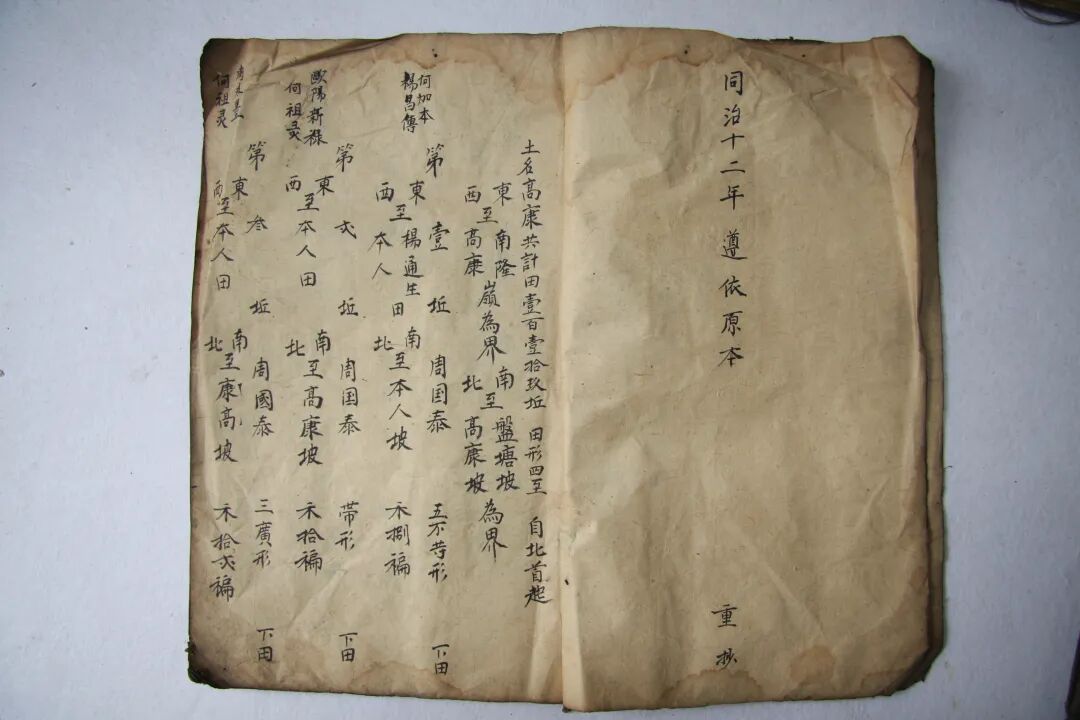 同治十二年遵依原本
重抄
土名高康共計田壹百壹拾玖坵 田形四至 自北首起
東至南隆嶺為界 南至盤塘坡為界
西至高康 北高康坡
何加本
楊昌傳
第壹坵 周国泰 五不等形 下田
東至楊通生田 南至本人坡
西本人 北
禾捌褊
歐陽新禄
何祖灵
第弍坵 周国泰 帯形 下田
東至本人田 南至高康坡
西 北
禾拾褊
何祖灵
第叁坵 周國泰 三廣形 下田
東至本人田 南至康高坡
西 北
禾拾弍褊